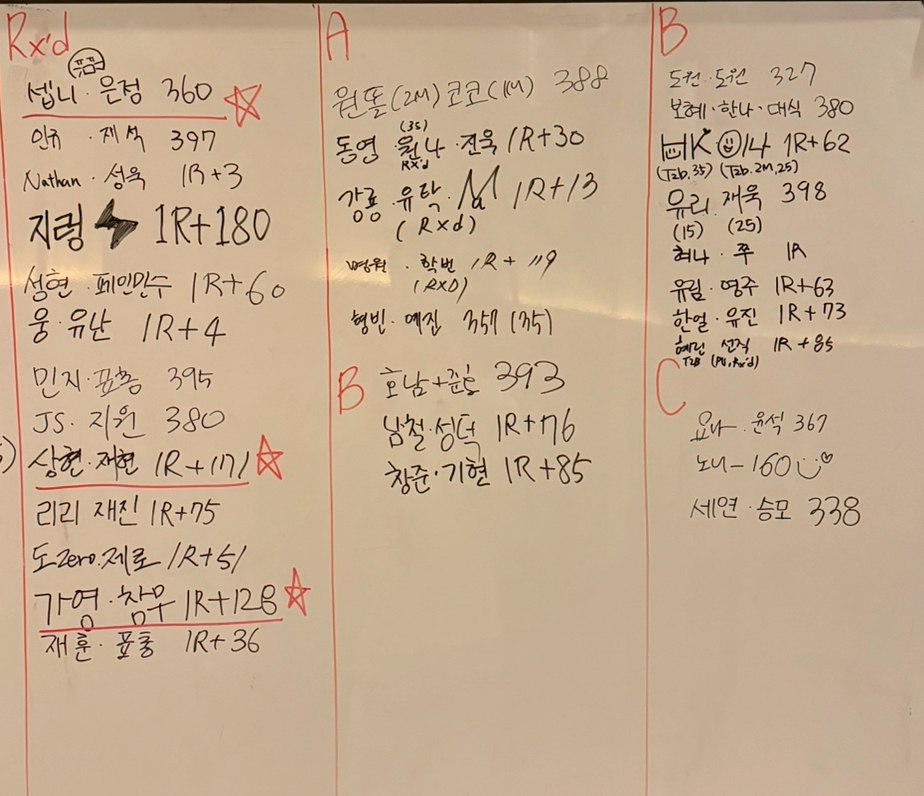 Rx'd
셉니·은정 360
인유·재석 397
Nathan·성욱 1R+3
지렁 1R+180
성현·페인민수 1R+60
웅·유난 1R+4
민지·표총 395
JS·지원 380
상현·재현 1R+171
리리 재진 1R+75
도Zero.제로 1R+51
가영·참무 1R+128
재훈·표총 1R+36
A
원똘(2M)코코(1M) 388
(35)
동영·원나·진욱 1R+30
RX'd
강룡·유탁· 1R+13
(RXd)
명원·학번 1R+119
(RXD)
형빈·예진 357 (35)
B 호남+준호 393
남철·성덕 1R+76
창준·기현 1R+85
B
도원·도원 327
보혜·한나·대식 380
1R+62
(T2b.35) (T2b.2M,25)
유리 재욱 398
(15) (25)
혀나·쭈 1R
유림·영주 1R+63
한얼·유진 1R+73
혜린 선직 1R+85
T2B (PU,Rx'd)
C
요나·윤석 367
노니-160
세연·승모 338